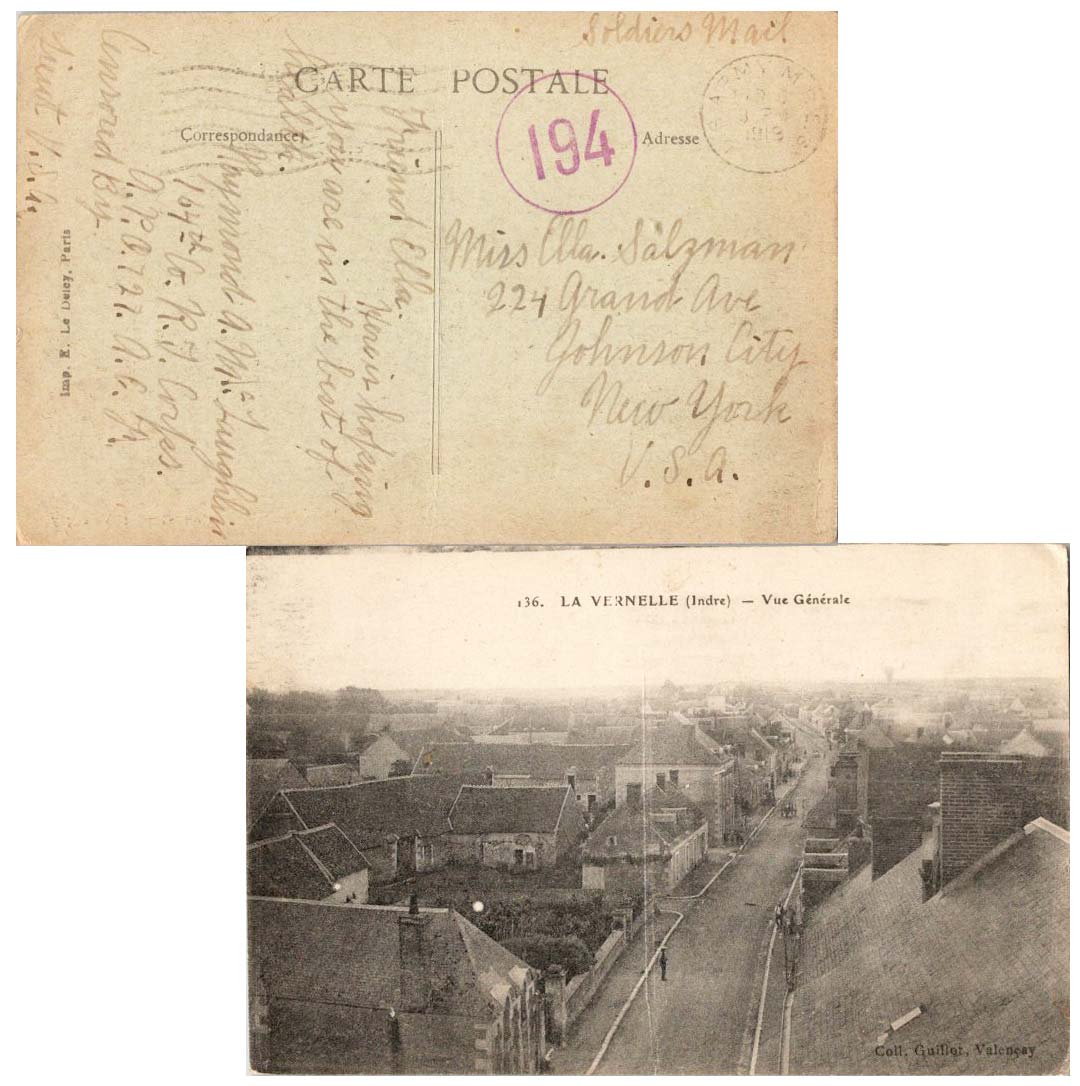 Soldiers Mail
CARTE POSTALE
Correspondance
Adresse
194
1919
Miss Ella. Salzman
224 Grand Ave
Johnson City
New York
U.S.A.
Friend Ella.
hoping
you are in the best of
health.
Raymond. A. McLaughlin
164th Co. R.T. Corps.
A.P.O. 727. A.E.F.
Censored By
Lieut U.S.A.
Imp. E. Le Deley, Paris
136. LA VERNELLE (Indre) — Vue Générale
Coll. Guillot, Valençay